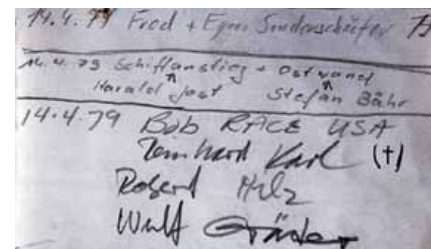 14.4.79 Fred + Egon Sonderschäfer 79
14.4.79 Schifflanstieg + Ostwand
Harald Jost Stefan Bähr
14.4.79 Bob RACE USA
Reinhard Karl (†)
Robert Hilz
Wulf